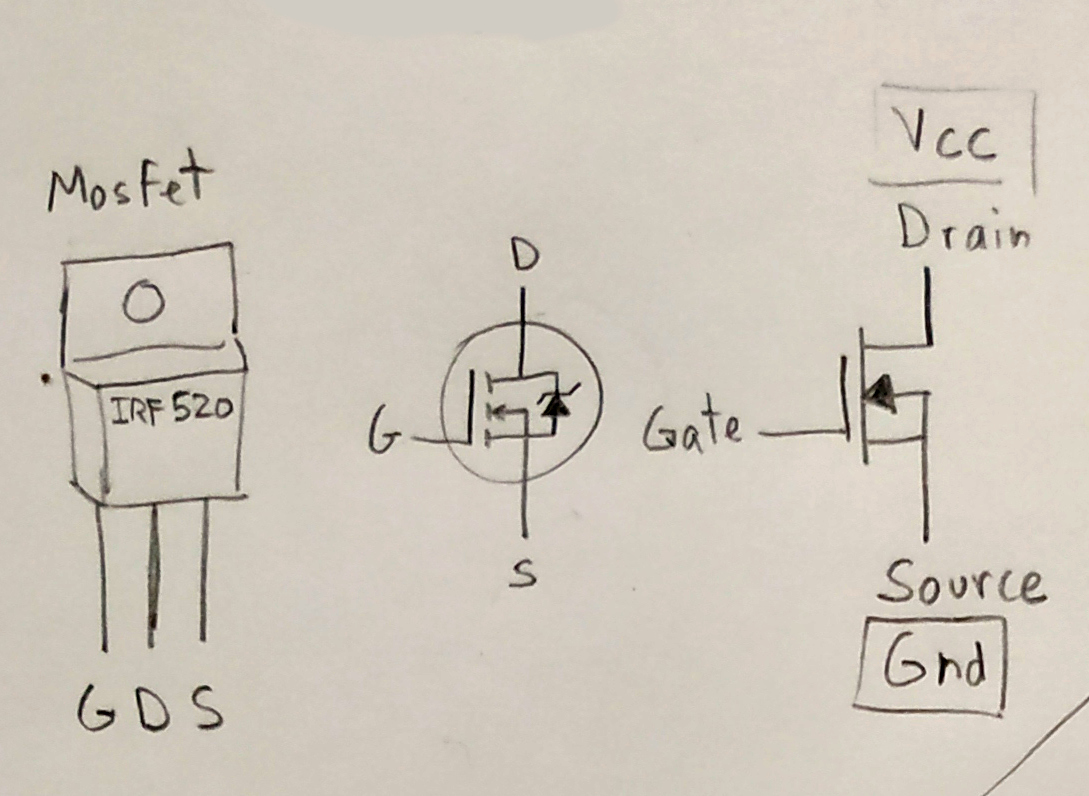 Mosfet
IRF520
G D S
D
G
S
Vcc
Drain
Gate
Source
Gnd